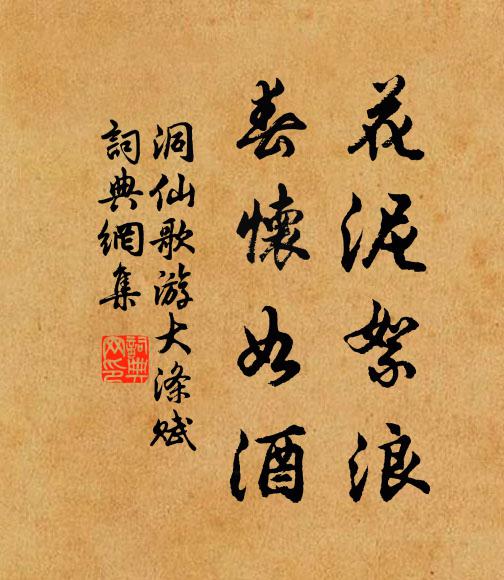 花泥絮浪
春懷如酒
洞仙歌游大滌賦
詞典網集
詞典
网印